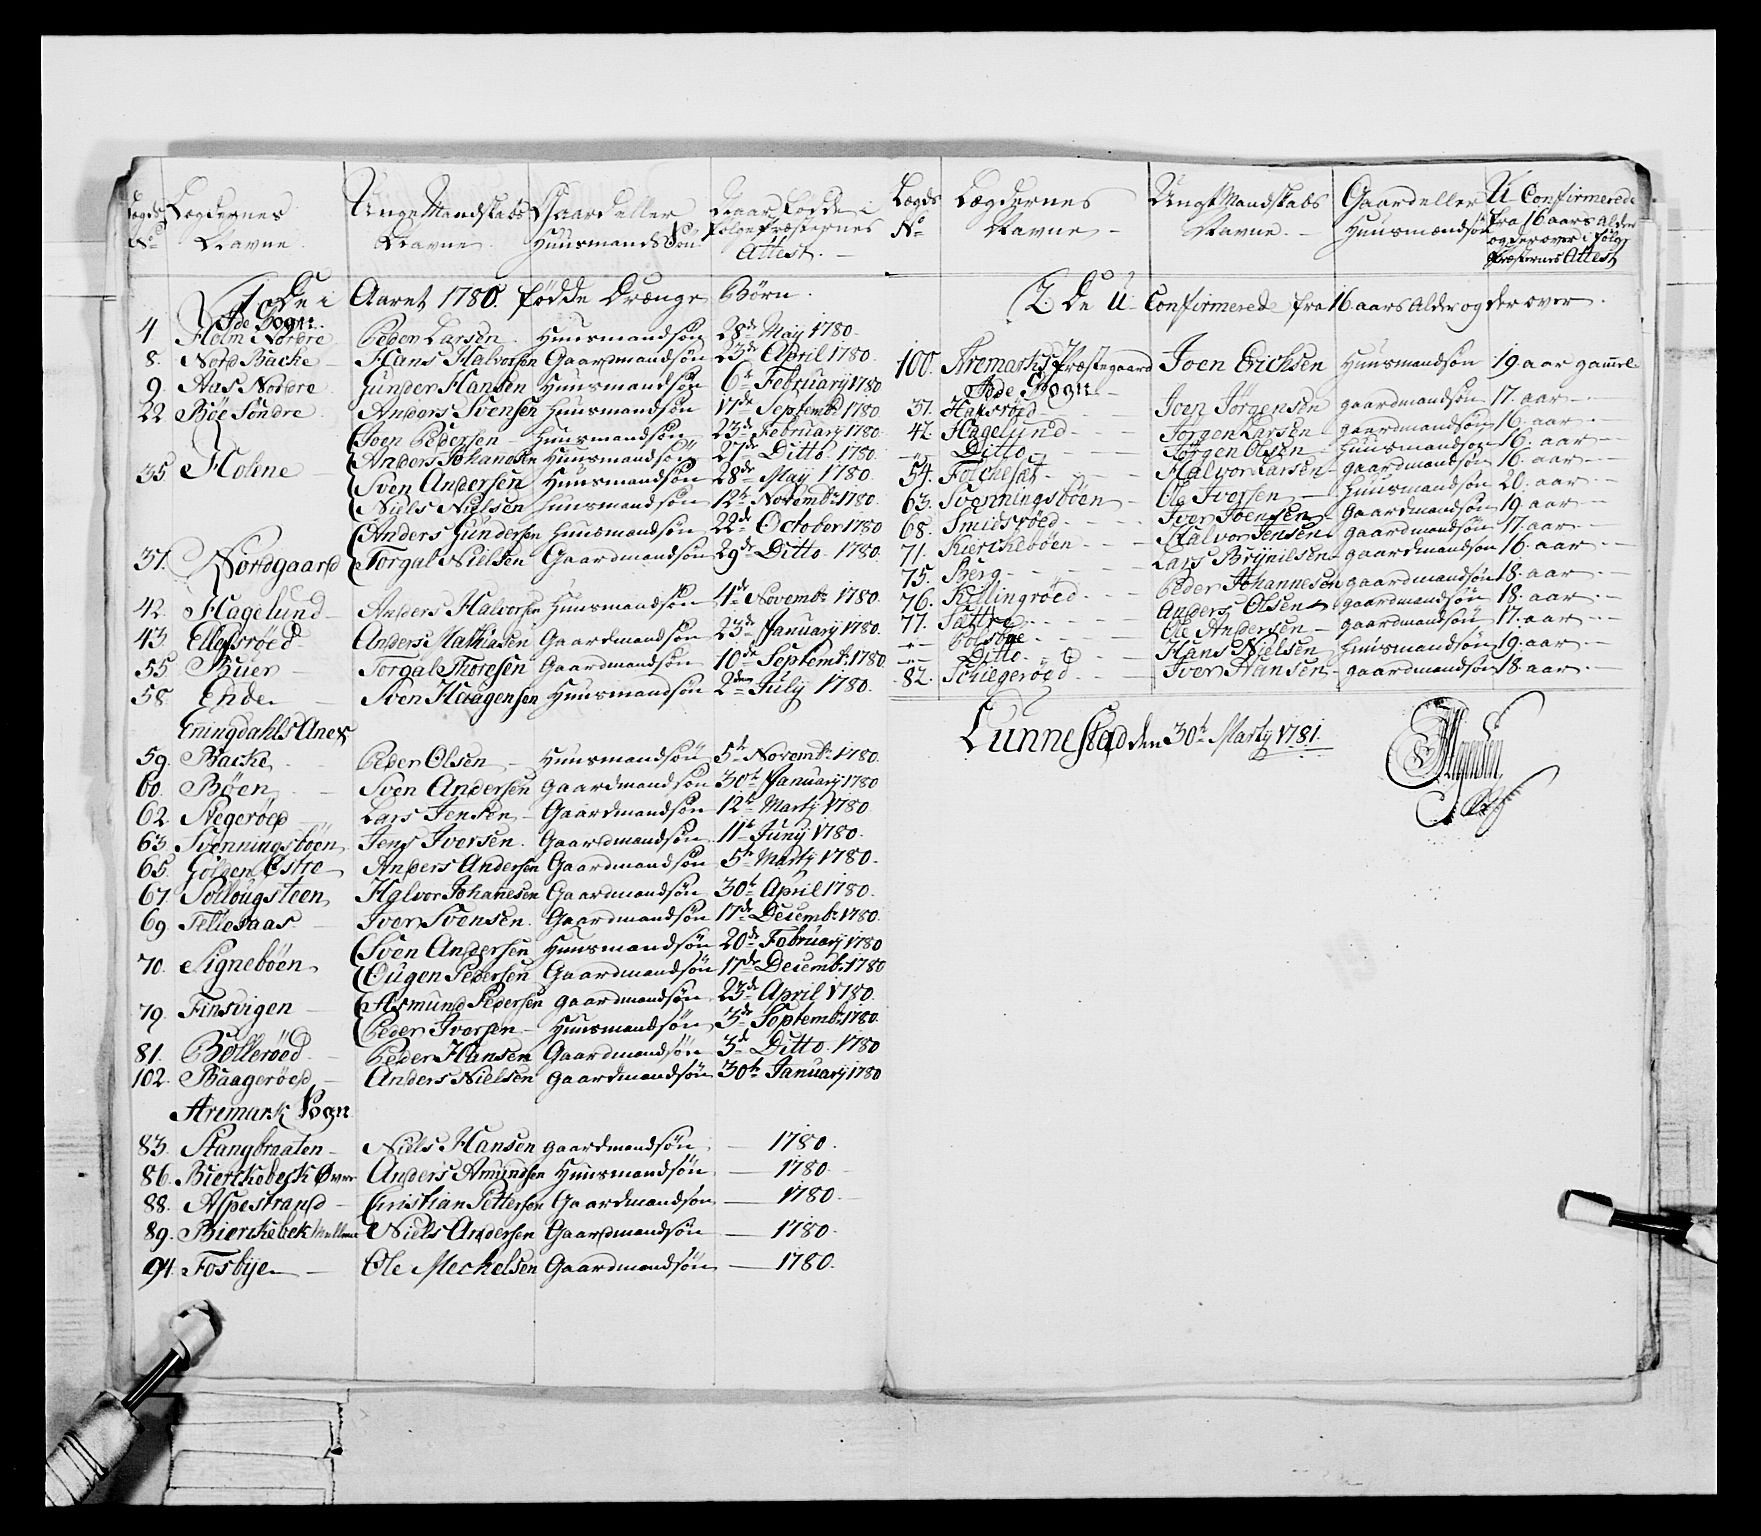 Lægds No. Lægdernes Navne. Unge Mandskabs Navne. Gaard eller Huusmands Søn. De aar Fødde i følge Præsternes Attest.
1o De i Aaret 1780. fødde Drænge Børn.
Ide Sogn.
4 Holm Nordre Peder Larsen Huusmandsøn 28de May 1780.
8. Nord Backe Hans Halvorsen Gaardmandsøn 23de April 1780.
9. Aas Nordre Gunder Hansen Huusmandsøn 6te February 1780
22 Böe Söndre Anders Svensen Huusmandsøn 17de Septembr 1780.
Joen Pedersen Huusmandsøn 23de February 1780.
Anders Johansen Huusmandsøn 27de Ditto 1780.
35 Holene Sven Andersen Huusmandsøn 28de May 1780.
Niels Nielsen Huusmandsøn 12te Novembr 1780.
Anders Gundersen Huusmandsøn 22de October 1780
37. Nordgaard Torgal Nielsen Gaardmandsøn 29de Ditto 1780.
42. Hagelund Anders Halvorsen Huusmandsøn 4de Novembr 1780.
43. Ellefsrøed Anders Mathiasen Gaardmandsøn 23de January 1780.
55. Buer Torgal Thoresen Gaardmandsøn 10de Septembr 1780.
58. Ende Sven Haagensen Huusmandsøn 2den July 1780.
Eningdahls Anex
59. Backe Peder Olsen Huusmandsøn 5te Novembr 1780.
60. Böen Sven Andersen Gaardmandsøn 30te January 1780
62. Stegerøed Lars Jensen Gaardmandsøn 12te Marty 1780
63. Svenningsböen Jens Iversen Gaardmandsøn 11te Juny 1780.
65. Gölpen Östre Anders Andersen Gaardmandsøn 5te Marty 1780.
67. Sollougsteen Halvor Johanesen Gaardmandsøn 30te April 1780.
69. Tellesaas Iver Svensen Gaardmandsøn 17de Decembr 1780.
Sven Andersen Huusmandsøn 20de February 1780
70. Signeböen Ougen Pedersen Gaardmandsøn 17de Decembr 1780
79. Finsvigen Asmund Pedersen Gaardmandsøn 23de April 1780.
Peder Iversen Huusmandsøn 3de Septembr 1780.
81. Böllerøed Peder Hansen Gaardmandsøn 3de Ditto 1780
102. Baagerøed Anders Nielsen Gaardmandsøn 30te January 1780
Aremark Sogn
83. Stangbraaten Niels Hansen Gaardmandsøn 1780.
86. Bierckebeck Øvre Anders Amundsen Huusmandsøn 1780.
88. Aspestrand Christian Pettersen Gaardmandsøn 1780.
89. Bierckebek Mellem Niels Andersen Gaardmandsøn 1780.
94. Fosbye Ole Meckelsen Gaardmandsøn 1780.
Lægds No. Lægdernes Navne. Ungt Mandskabs Navne. Gaard eller Huusmandsøn U Confirmerede fra 16 aars Alder og derover i følge Præsternes Attest
2. De U Confirmerede fra 16 aars Alder og derover.
100. Aremarks Præstegaard Joen Erichsen Huusmandsøn 19 aar gammel
Ide Sogn
37. Hafsröed Joen Jörgensen gaardmandsøn 17. aar
42. Hagelund Jörgen Larsen gaardmandsøn 16. aar
Ditto Jörgen Olsen Huusmandsøn 16. aar
54. Folckesat Halvor Larsen gaardmandsøn 16. aar
63. Svenningsböen Ole Iversen Huusmandsøn 20. aar
68. Smidsröed Iver Joensen Gaardmandsøn 19. aar
71. Kierckeböen Halvor Jensen gaardmandsøn 17. aar
75. Berg Lars Brynilsen gaardmandsøn 16. aar
76. Killingröed Peder Johannesen gaardmandsøn 18. aar
77. Sættre Anders Olsen gaardmandsøn 18. aar
Ole Andersen gaardmandsøn 17. aar
Ditto Hans Nielsen Huusmandsøn 19. aar
82. Schiegeröed Iver Hansen gaardmandsøn 18. aar
Lunnestad den 30te Marty 1781.